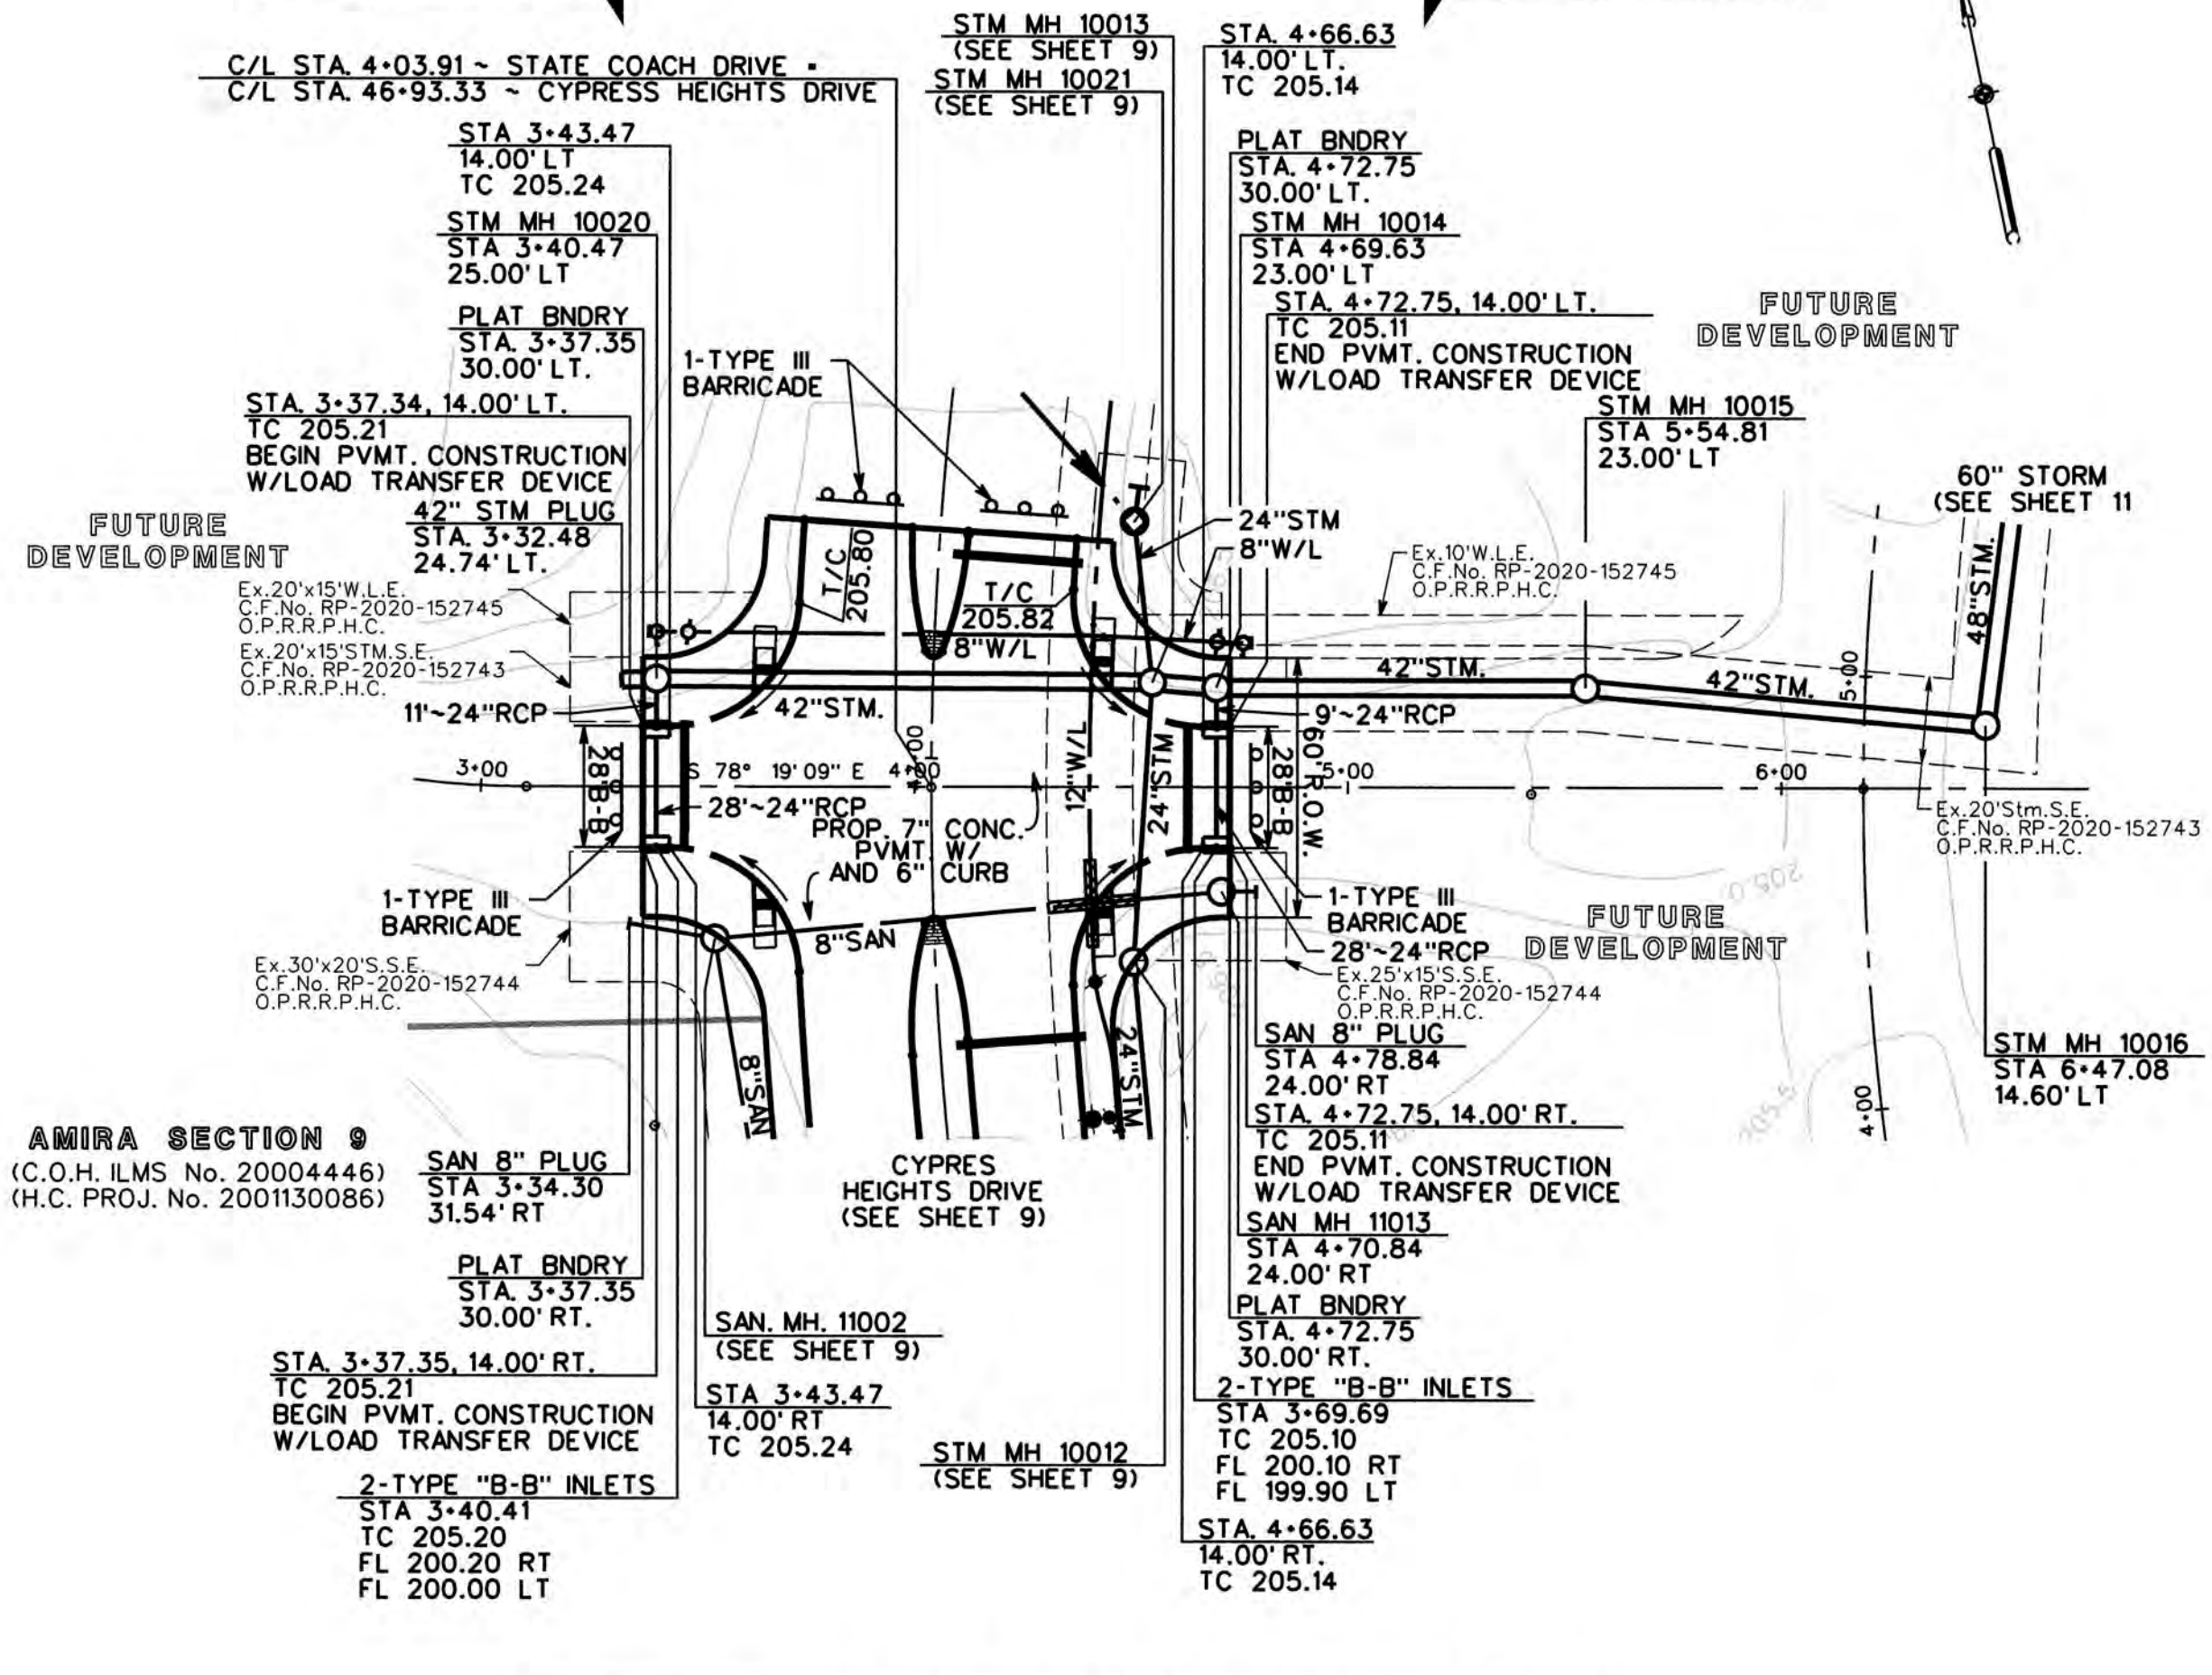 STM MH 10013
(SEE SHEET 9)
STM MH 10021
(SEE SHEET 9)
STA. 4+66.63
14.00' LT.
TC 205.14
C/L STA. 4+03.91 ~ STATE COACH DRIVE =
C/L STA. 46+93.33 ~ CYPRESS HEIGHTS DRIVE
STA 3+43.47
14.00' LT
TC 205.24
STM MH 10020
STA 3+40.47
25.00' LT
PLAT BNDRY
STA. 3+37.35
30.00' LT.
STA. 3+37.34, 14.00' LT.
TC 205.21
BEGIN PVMT. CONSTRUCTION
W/LOAD TRANSFER DEVICE
42" STM PLUG
STA. 3+32.48
24.74' LT.
1-TYPE III
BARRICADE
PLAT BNDRY
STA. 4+72.75
30.00' LT.
STM MH 10014
STA 4+69.63
23.00' LT
STA. 4+72.75, 14.00' LT.
TC 205.11
END PVMT. CONSTRUCTION
W/LOAD TRANSFER DEVICE
FUTURE
DEVELOPMENT
STM MH 10015
STA 5+54.81
23.00' LT
60" STORM
(SEE SHEET 11
FUTURE
DEVELOPMENT
Ex.20'x15'W.L.E.
C.F.No. RP-2020-152745
O.P.R.R.P.H.C.
Ex.20'x15'STM.S.E.
C.F.No. RP-2020-152743
O.P.R.R.P.H.C.
11'~24"RCP
T/C
205.80
T/C
205.82
24"STM
8"W/L
8"W/L
Ex.10'W.L.E.
C.F.No. RP-2020-152745
O.P.R.R.P.H.C.
48"STM.
42"STM.
42"STM.
42"STM.
5+00
9'~24"RCP
28'B-B
3+00
S 78° 19' 09" E
4+00
12"W/L
24"STM
28'B-B
60' R.O.W.
5+00
6+00
28'~24"RCP
PROP. 7" CONC.
PVMT. W/
AND 6" CURB
Ex.20'Stm.S.E.
C.F.No. RP-2020-152743
O.P.R.R.P.H.C.
1-TYPE III
BARRICADE
8"SAN
1-TYPE III
BARRICADE
28'~24"RCP
FUTURE
DEVELOPMENT
205.0
Ex.30'x20'S.S.E.
C.F.No. RP-2020-152744
O.P.R.R.P.H.C.
Ex.25'x15'S.S.E.
C.F.No. RP-2020-152744
O.P.R.R.P.H.C.
8"SAN
24"STM
SAN 8" PLUG
STA 4+78.84
24.00' RT
STA. 4+72.75, 14.00' RT.
TC 205.11
END PVMT. CONSTRUCTION
W/LOAD TRANSFER DEVICE
205.5
4+00
STM MH 10016
STA 6+47.08
14.60' LT
AMIRA SECTION 9
(C.O.H. ILMS No. 20004446)
(H.C. PROJ. No. 2001130086)
SAN 8" PLUG
STA 3+34.30
31.54' RT
CYPRES
HEIGHTS DRIVE
(SEE SHEET 9)
SAN MH 11013
STA 4+70.84
24.00' RT
PLAT BNDRY
STA. 3+37.35
30.00' RT.
SAN. MH. 11002
(SEE SHEET 9)
PLAT BNDRY
STA. 4+72.75
30.00' RT.
STA. 3+37.35, 14.00' RT.
TC 205.21
BEGIN PVMT. CONSTRUCTION
W/LOAD TRANSFER DEVICE
STA 3+43.47
14.00' RT
TC 205.24
2-TYPE "B-B" INLETS
STA 3+69.69
TC 205.10
FL 200.10 RT
FL 199.90 LT
STM MH 10012
(SEE SHEET 9)
2-TYPE "B-B" INLETS
STA 3+40.41
TC 205.20
FL 200.20 RT
FL 200.00 LT
STA. 4+66.63
14.00' RT.
TC 205.14